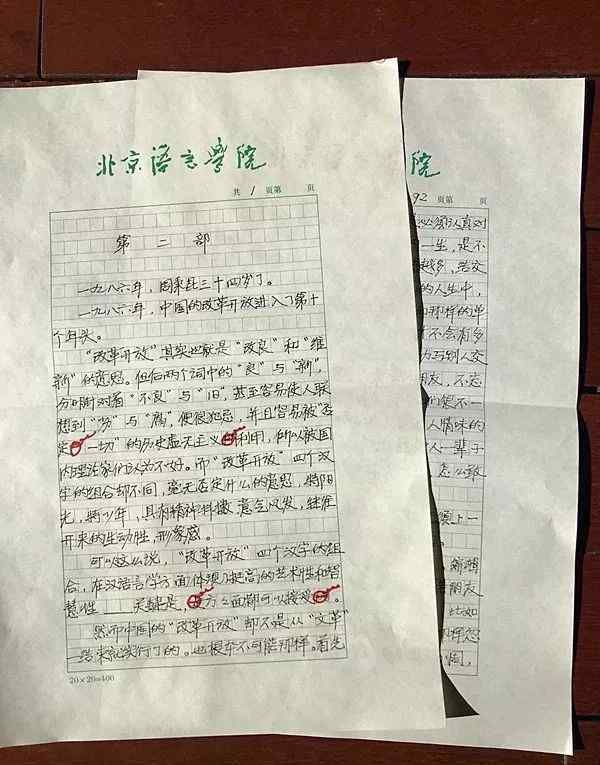 北京语言学院
共 1 頁第 頁
第二部
一九八六年,周秉昆三十四岁了。
一九八六年,中国的改革开放进入了第十
个年头。
"改革开放"其实也就是"改良"和"维
新"的意思。但后两个词中的"良"与"新",
分明对着"不良"与"旧",甚至容易使人联
想到"劣"与"腐",便很犯忌,并且容易被"否
定一切"的历史虚无主义利用,所以被国
内理论家们认为不好。而"改革开放"四个汉
字的组合却不同,毫无否定什么的意思,特阳
光,特少年,具有精神抖擞、意气风发,继往
开来的生动性,形象感。
可以这么说,"改革开放"四个汉字的组
合,在汉语言学方面体现了挺高的艺术性和智
慧性——关键是,方方面面都可以接受。
然而中国的"改革开放"却不是从"文革"
结束就实行了的。也根本不可能那样。首先
20×20=400
院
92 頁第 頁
必须认真对
一生,是不
越多,若交
的人生中,
和那样的单
不会有多
为与别人交
朋友,不忘
们怨不
人情味的
人一辈子
怎么敢
领上一
朋友
比如